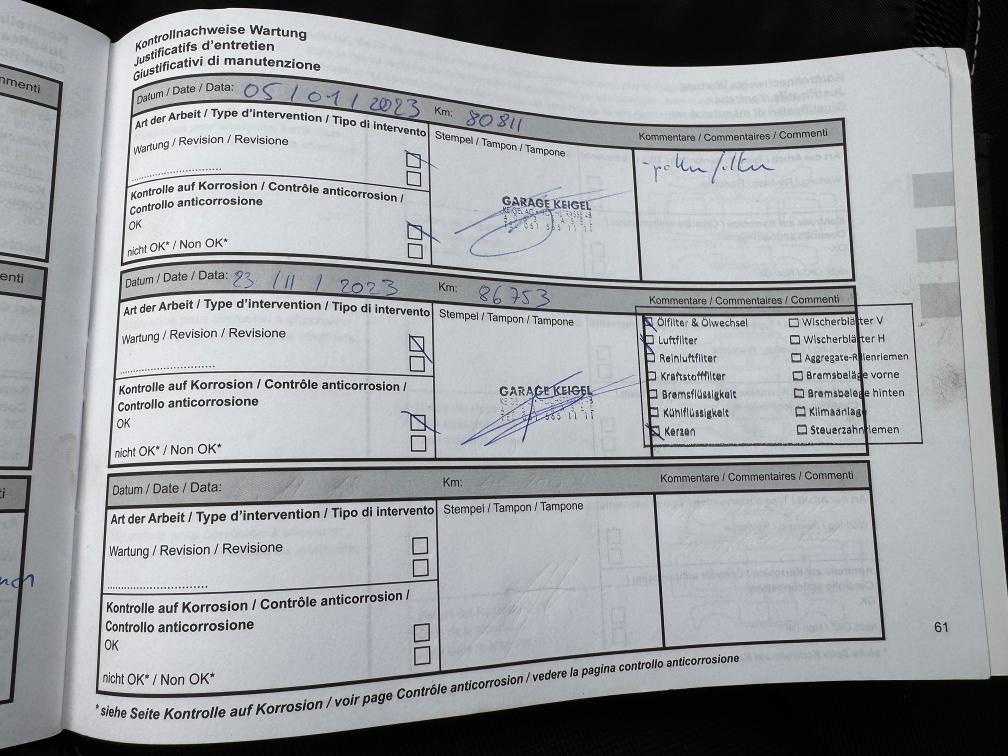 Kontrollnachweise Wartung
Justificatifs d'entretien
Giustificativi di manutenzione
Datum / Date / Data: 05 / 01 / 2023 Km: 80811
Art der Arbeit / Type d'intervention / Tipo di intervento
Stempel / Tampon / Tampone
Kommentare / Commentaires / Commenti
Wartung / Revision / Revisione
Kontrolle auf Korrosion / Contrôle anticorrosion /
Controllo anticorrosione
OK
nicht OK* / Non OK*
GARAGE KEIGEL
Datum / Date / Data: 23 / 11 / 2023 Km: 86753
Art der Arbeit / Type d'intervention / Tipo di intervento
Stempel / Tampon / Tampone
Kommentare / Commentaires / Commenti
Wartung / Revision / Revisione
Kontrolle auf Korrosion / Contrôle anticorrosion /
Controllo anticorrosione
OK
nicht OK* / Non OK*
GARAGE KEIGEL
Ölfilter & Ölwechsel Wischerblätter V
Luftfilter Wischerblätter H
Reinluftfilter Aggregate-Rienriemen
Kraftstofffilter Bremsbeläge vorne
Bremsflüssigkeit Bremsbeläge hinten
Kühlflüssigkeit Klimaanlage
Kerzen Steuerzahnriemen
Datum / Date / Data: Km:
Kommentare / Commentaires / Commenti
Art der Arbeit / Type d'intervention / Tipo di intervento
Stempel / Tampon / Tampone
Wartung / Revision / Revisione
Kontrolle auf Korrosion / Contrôle anticorrosion /
Controllo anticorrosione
OK
nicht OK* / Non OK*
61
*siehe Seite Kontrolle auf Korrosion / voir page Contrôle anticorrosion / vedere la pagina controllo anticorrosione